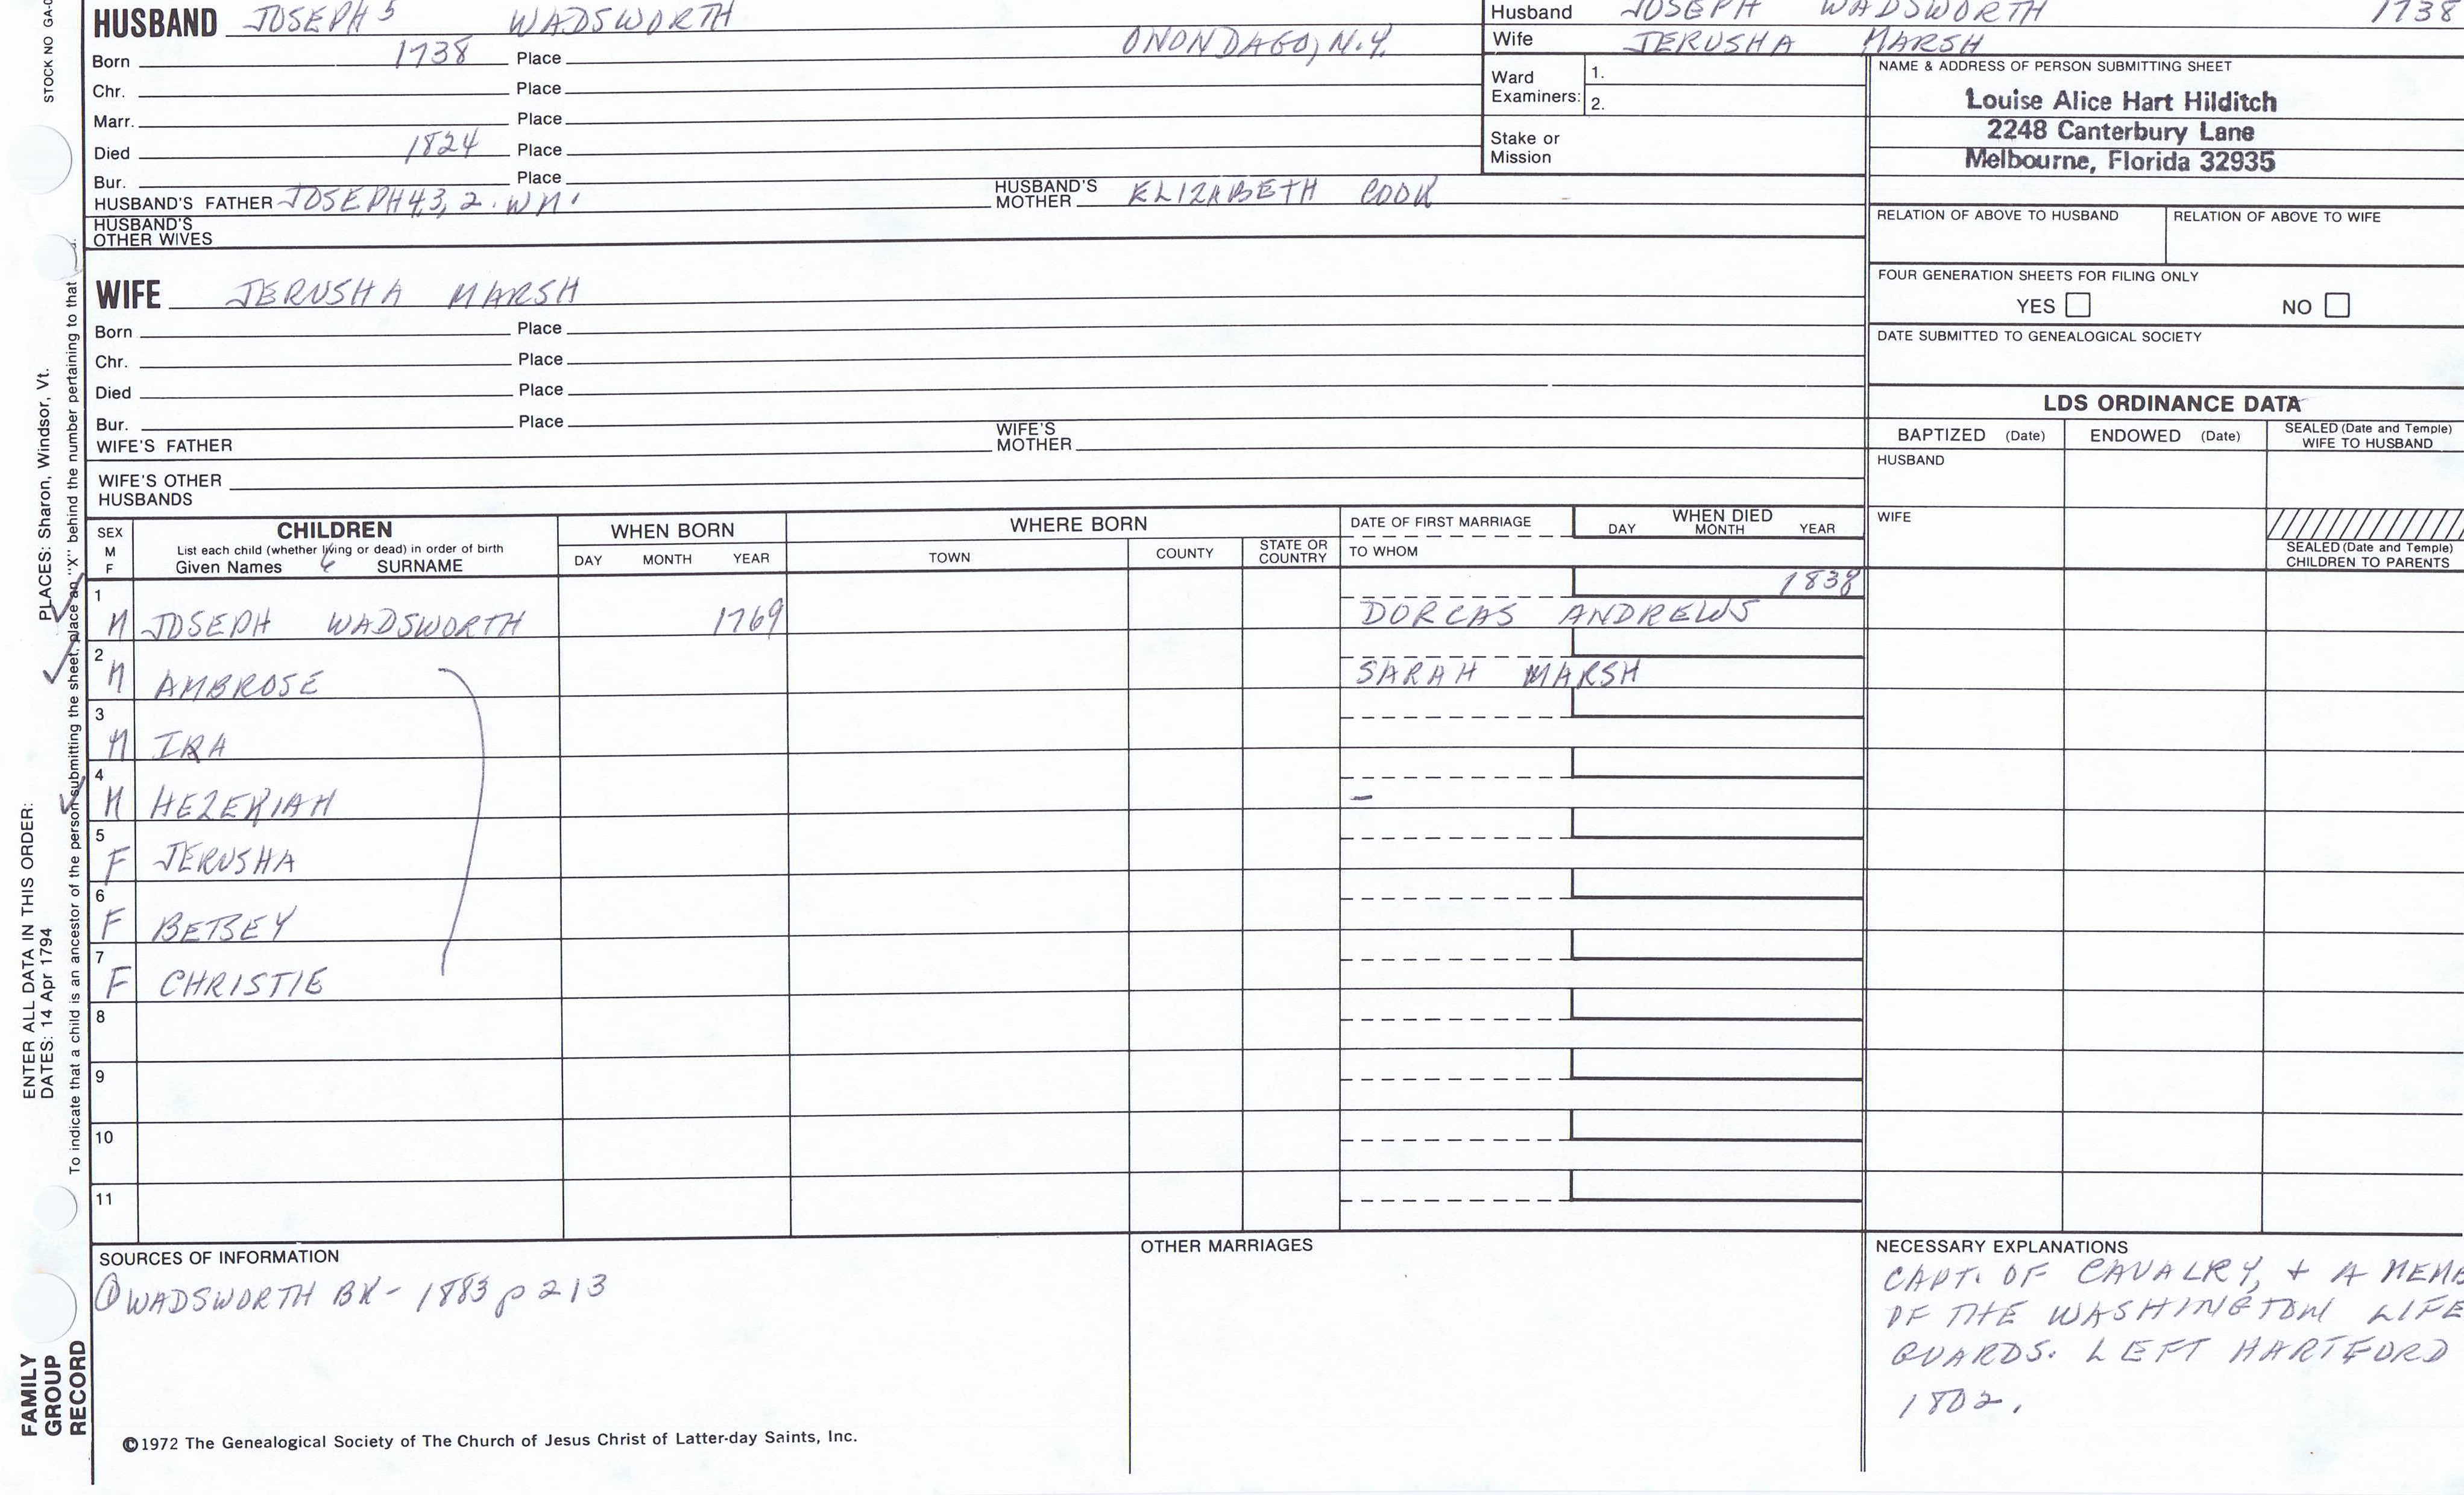 STOCK NO GA-
HUSBAND JOSEPH 5 WADSWORTH
Husband JOSEPH WADSWORTH 1738
Wife JERUSHA MARSH
Born 1738 Place ONONDAGO, N.Y.
Chr. Place
Marr. Place
Died 1824 Place
Bur. Place
HUSBAND'S FATHER JOSEPH 4,3,2. WM.
HUSBAND'S MOTHER ELIZABETH COOK
HUSBAND'S OTHER WIVES
Ward Examiners: 1.
2.
Stake or Mission
NAME & ADDRESS OF PERSON SUBMITTING SHEET
Louise Alice Hart Hilditch
2248 Canterbury Lane
Melbourne, Florida 32935
RELATION OF ABOVE TO HUSBAND RELATION OF ABOVE TO WIFE
FOUR GENERATION SHEETS FOR FILING ONLY
YES NO
DATE SUBMITTED TO GENEALOGICAL SOCIETY
WIFE JERUSHA MARSH
Born Place
Chr. Place
Died Place
Bur. Place
WIFE'S FATHER WIFE'S MOTHER
WIFE'S OTHER HUSBANDS
LDS ORDINANCE DATA
BAPTIZED (Date) ENDOWED (Date) SEALED (Date and Temple) WIFE TO HUSBAND
HUSBAND
WIFE
SEALED (Date and Temple) CHILDREN TO PARENTS
SEX M F
CHILDREN
List each child (whether living or dead) in order of birth
Given Names SURNAME
WHEN BORN
DAY MONTH YEAR
WHERE BORN
TOWN COUNTY STATE OR COUNTRY
DATE OF FIRST MARRIAGE
TO WHOM
WHEN DIED
DAY MONTH YEAR
1 1838
M JOSEPH WADSWORTH 1769 DORCAS ANDREWS
2 M AMBROSE SARAH MARSH
3 M IRA
4 M HEZEKIAH –
5 F JERUSHA
6 F BETSEY
7 F CHRISTIE
8
9
10
11
SOURCES OF INFORMATION
① WADSWORTH BK - 1883 p 213
OTHER MARRIAGES
NECESSARY EXPLANATIONS
CAPT. OF CAVALRY, + A MEMB
OF THE WASHINGTON LIFE
GUARDS. LEFT HARTFORD
1802.
©1972 The Genealogical Society of The Church of Jesus Christ of Latter-day Saints, Inc.
FAMILY
GROUP
RECORD
ENTER ALL DATA IN THIS ORDER:
DATES: 14 Apr 1794 PLACES: Sharon, Windsor, Vt.
To indicate that a child is an ancestor of the person submitting the sheet, place an "X" behind the number pertaining to that